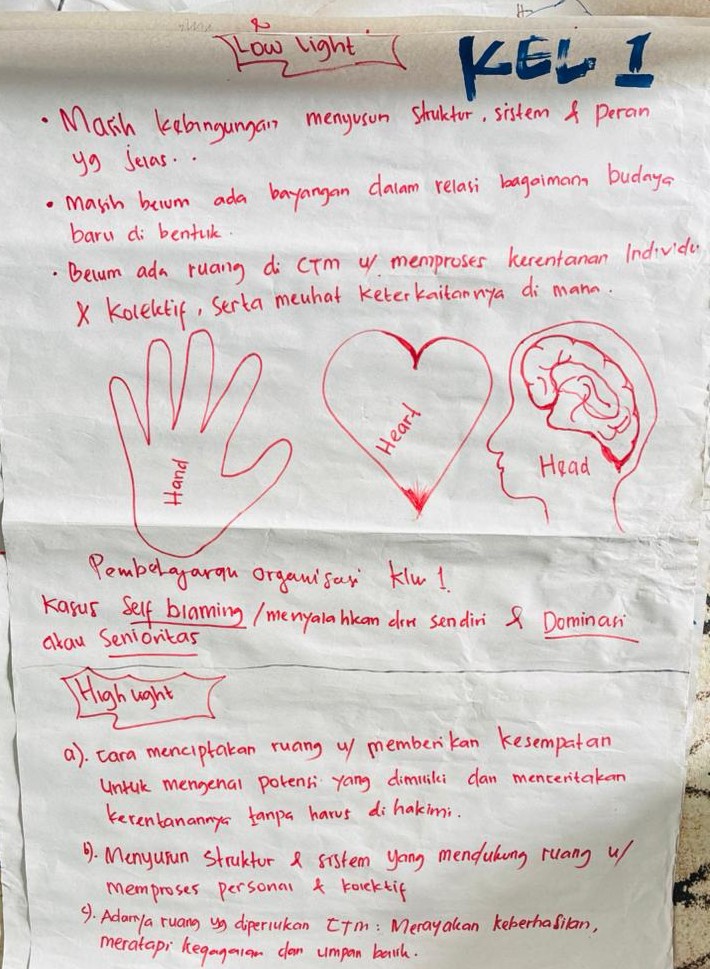 Low light
KEL 1
• Masih kebingungan menyusun struktur, sistem & peran
yg jelas..
• Masih belum ada bayangan dalam relasi bagaimana budaya
baru di bentuk.
• Belum ada ruang di CTM u/ memproses kerentanan Individu
X Kolektif, serta melihat keterkaitannya di mana.
Hand
Heart
Head
Pembelajaran organisasi klw 1.
Kasus Self blaming / menyalahkan diri sendiri & Dominasi
atau Senioritas
High light
a). Cara menciptakan ruang u/ memberikan kesempatan
untuk mengenal potensi yang dimiliki dan menceritakan
kerentanannya tanpa harus di hakimi.
b). Menyusun struktur & sistem yang mendukung ruang u/
memproses personal & kolektif
c). Adanya ruang yg diperlukan CTM : Merayakan keberhasilan,
meratapi kegagalan dan umpan balik.